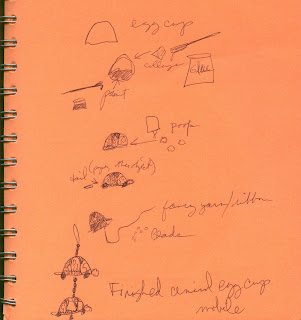 egg cup
collage
Glue
paint
poofs
tail (paper,
fancy yarn/ribbon
beads
Finished animal egg cup
mobile